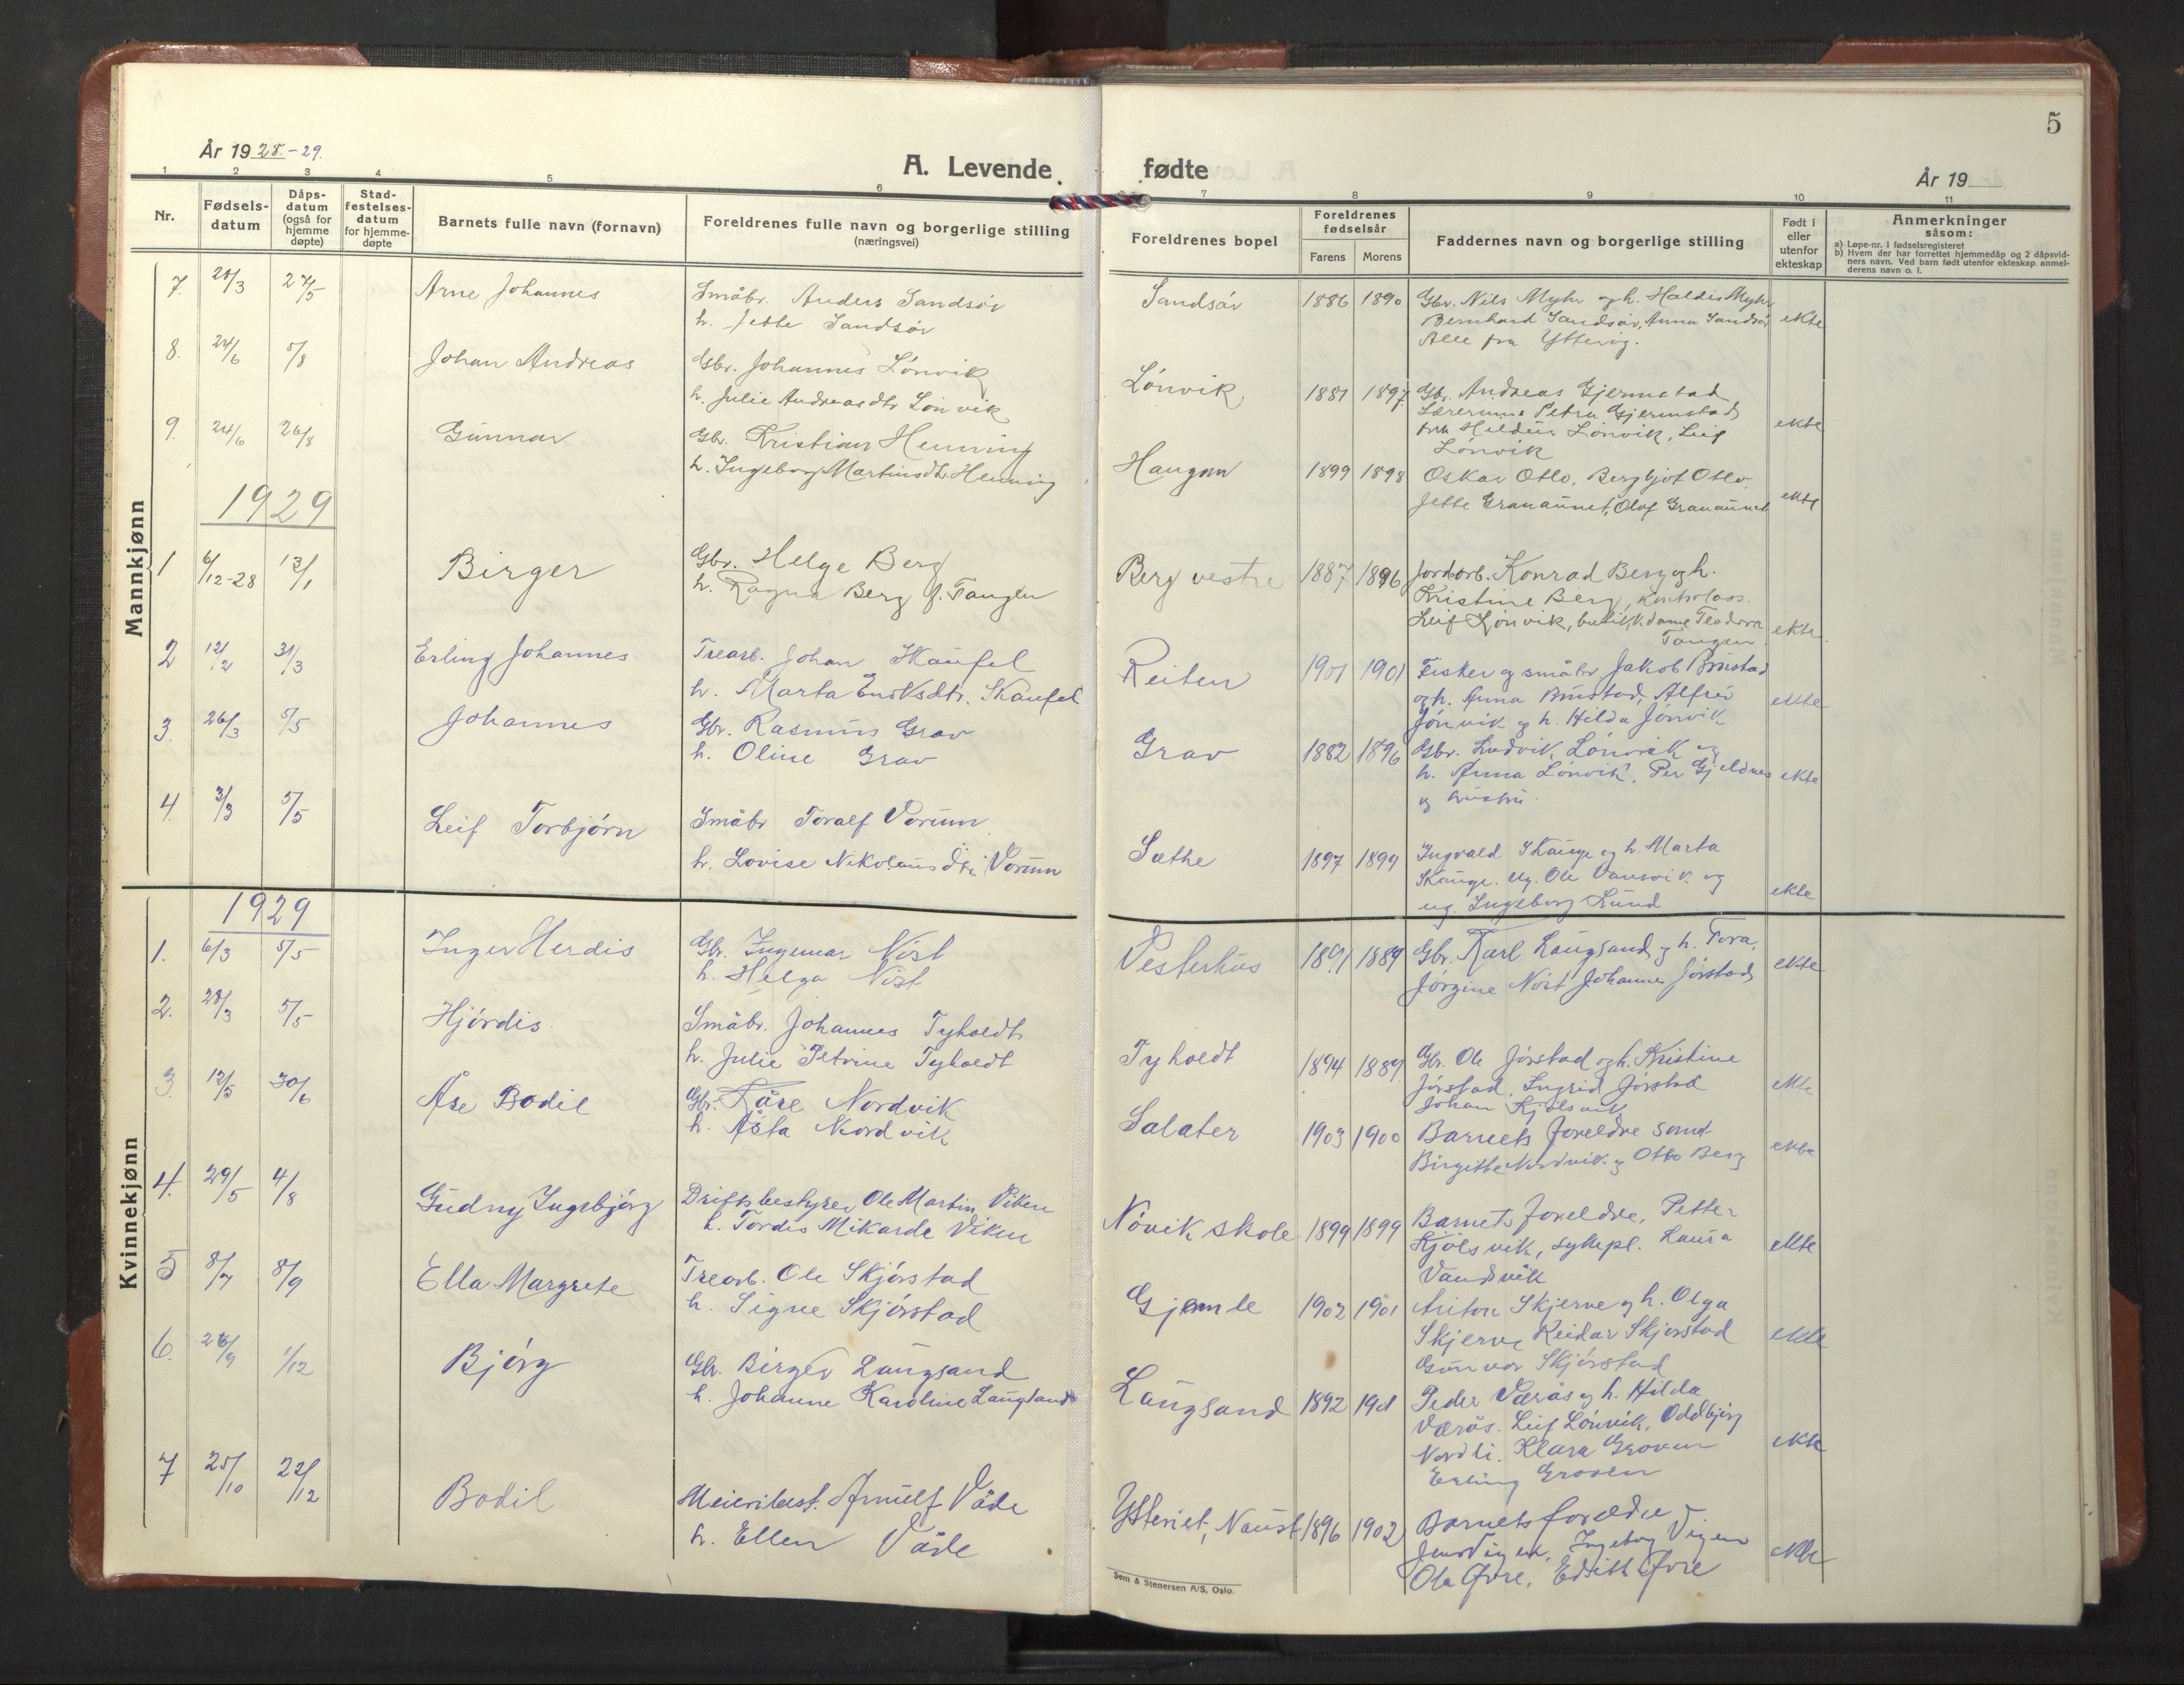 5
År 1928.-29.
A. Levende
fødte
År 19
1 2 3 4 5 6 7 8 9 10 11
Nr.
Fødsels-
datum
Dåps-
datum
(også for
hjemme
døpte)
Stad-
festelses-
datum
for hjemme-
døpte
Barnets fulle navn (fornavn)
Foreldrenes fulle navn og borgerlige stilling
(næringsvei)
Foreldrenes bopel
Foreldrenes
fødselsår
Farens Morens
Faddernes navn og borgerlige stilling
Født i
eller
utenfor
ekteskap
Anmerkninger
såsom:
a) Løpe-nr. i fødselsregisteret
b) Hvem der har forrettet hjemmedåp og 2 dåpsvid-
ners navn. Ved barn født utenfor ekteskap, anmel-
derens navn o. l.
Mannkjønn
7. 28/3 27/5 Arne Johannes Småbr. Anders Sandsør Sandsør 1886 1890 Gbr. Nils Myhr og h. Haldis Myhr
h. Jette Sandsør Bernhard Sandsør, Anna Sandsør ekte
Alle fra Ytterøy.
8. 24/6 5/8 Johan Andreas Gbr. Johannes Lönvik Lönvik 1881 1897 Gbr. Andreas Gjermstad
h. Julie Andreasdtr Lönvik Petra Gjermstad
Lönvik, Leif ekte
Lönvik
9. 24/6 26/8 Gunnar Gbr. Kristian Henning Haugan 1899 1898 Oskar Otlo, Otlo,
h. Ingeborg Martinsdtr. Henning Jette Granaunet, Olaf Granaunet ekte
1929
1 6/12-28 13/1 Birger Gbr. Helge Berg Berg vestre 1887 1896 Jordarb. Konrad Berg og h.
h. Ragna Berg f. Tangen Kristine Berg,
Leif Lönvik, Teodora ekte
Tangen
2 12/2 31/3 Erling Johannes Trearb. Johan Skaufel Reiten 1901 1901 Fisker og småbr Jakob Brustad
h. Marta Skaufel og h. Anna Brustad, Alfred ekte
Jönvik og h. Hilda Jönvik
3. 26/3 5/5 Johannes Gbr. Rasmus Grav Grav 1882 1896 Gbr. Ludvik Lönvik og
h. Oline Grav h. Anna Lönvik, Per Gjeldnes ekte
og hustru.
4. 3/3 5/5 Leif Torbjörn Småbr Toralf Vorum Sæthe 1897 1899 Ingvald Skauge og h. Marta
h. Lovise Nikolausdtr. Vorum Skauge. Ug. Ole og ekte
ug. Ingeborg Lund
Kvinnekjønn
1929
1. 6/3 5/5 Inger Herdis Gbr. Ingemar Nöst Vesterhus 1891 1889 Gbr. Karl Langsand og h. Tora, ekte
h. Helga Nöst Jörgine Nöst Johannes Jörstad
2. 28/3 5/5 Hjördis Småbr. Johannes Tyholdt Tyholdt 1894 1889 Gbr. Ole Jörstad og h. Kristine
h. Julie Petrine Tyholdt Jörstad, Ingrid Jörstad ekte
Johan Kjölsvik
3. 12/5 30/6 Åse Bodil Gbr. Kåre Nordvik Salater 1903 1900 Barnets foreldre samt
h. Åsta Nordvik Birgitte Nordvik og Otto Berg ekte
4. 29/5 4/8 Gudny Ingebjörg Driftsbestyrer Ole Martin Viken Növik skole 1899 1899 Barnets foreldre, Petter
h. Tordis Mikarda Viken Kjölsvik, sykepl. Laura ekte
Vandsvik
5 8/7 8/9 Ella Margrete Trearb. Ole Skjörstad Gjemle 1902 1901 Anton Skjerve og h. Olga
h. Signe Skjörstad Skjerve Reidar Skjörstad ekte
Gunvor Skjörstad
6. 26/9 1/12 Björg Gbr. Birger Langsand Langsand 1892 1901 Peder Værås og h. Hilda
h. Johanne Karoline Langsand Værås. Leif Lönvik, Oddbjörg
Nordli. Klara Groven ekte
Erling Groven
7 25/10 22/12 Bodil Meieribest. Arnulf Våde Ysteriet, Naust 1896 1902 Barnets foreldre
h. Ellen Våde Ingeborg Vigen ekte
Ola Øvre, Edith Øvre
Sem & Stenersen A/S, Oslo.